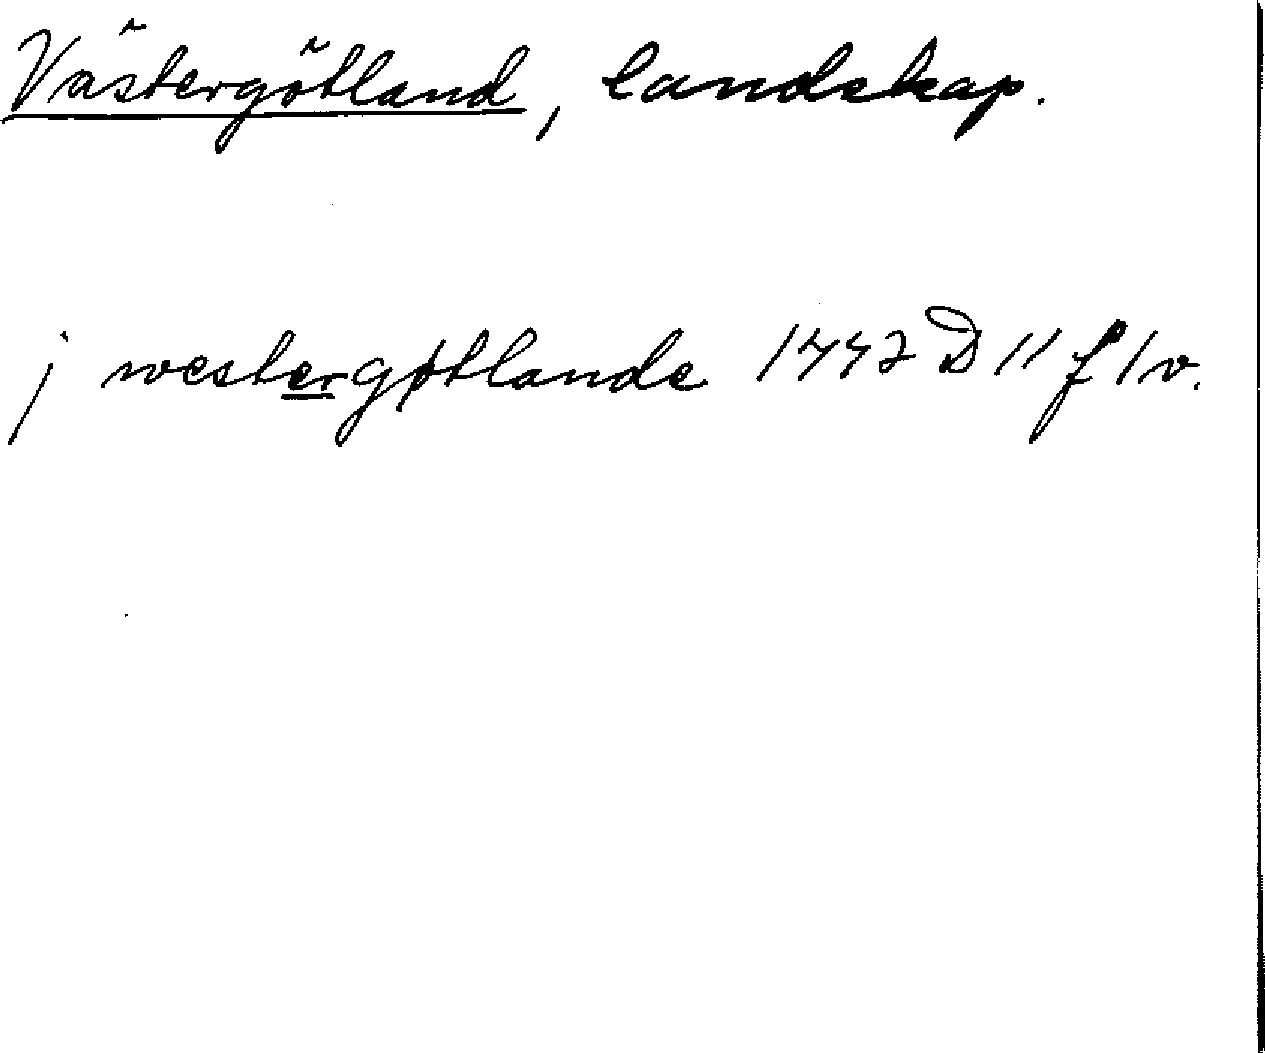 Västergötland, landskap.
j westergøtlande 1442 D 11 f 1v.